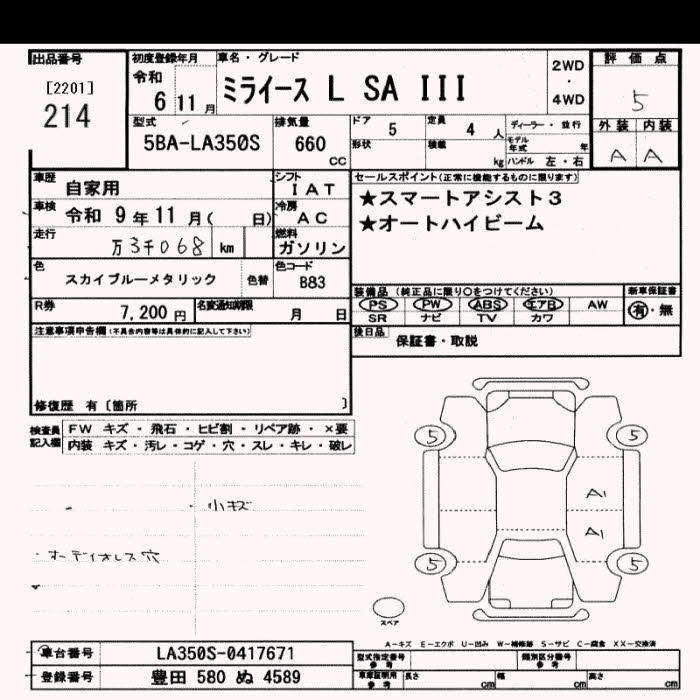 出品番号
[2201]
214
初度登録年月
令和
6 11 月
車名・グレード
ミライース L SA III
2WD
・
4WD
評価点
5
外装 内装
A A
型式
5BA-LA350S
排気量
660
CC
ドア 5
定員 4 人
ディーラー・並行
形状
積載 kg
モデル年式 年
ハンドル 左・右
車歴 自家用
シフト
IAT
セールスポイント(正常に機能するものに限ります)
★スマートアシスト3
★オートハイビーム
車検 令和 9 年 11 月( 日)
冷房
AC
走行 万3千068 km
燃料
ガソリン
色 スカイブルーメタリック 色替
色コード
B83
装備品(純正品に限り○をつけてください)
PS PW ABS エアB AW
SR ナビ TV カワ
新車保証書
有・無
R券 7,200 円
名変通知期限 月 日
後日品 保証書・取説
注意事項申告欄(不具合内容等は具体的に記入して下さい)
修復歴 有〔箇所 〕
検査員記入欄
FW キズ・飛石・ヒビ割・リペア跡・×要
内装 キズ・汚レ・コゲ・穴・スレ・キレ・破レ
・小キズ
・オーディオレス穴
5 5
A1
A1
5 5
スペア
A−キズ E−エクボ U−凹み W−補修跡 S−サビ C−腐食 XX−交換済
車台番号 LA350S-0417671
登録番号 豊田 580 ぬ 4589
型式指定番号
参考
類別区分番号
参考
車庫証明用
参考
長さ cm 幅 cm 高さ cm